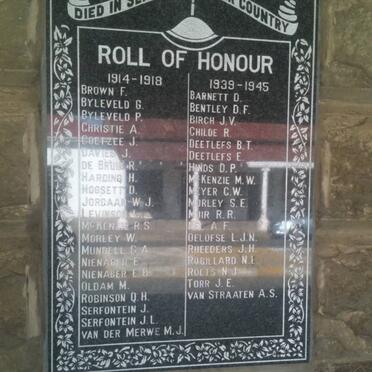 DIED IN COUNTRY
ROLL OF HONOUR
1914-1918
BROWN F.
BYLEVELD G.
BYLEVELD P.
CHRISTIE A.
COETZEE J.
DAVIES J.
DE BRUIN R.
HARDING H.
HOGSETT D.
JORDAAN W.J.
LEVINSON
MCKENZIE R.S.
MORLEY W.
MUNDELL G.A.
NIENABER E.
NIENABER E.B.
OLDAM M.
ROBINSON Q.H.
SERFONTEIN J.
SERFONTEIN J.L.
VAN DER MERWE M.J.
1939-1945
BARNETT D.
BENTLEY D.F.
BIRCH J.V.
CHILDE R.
DEETLEFS B.T.
DEETLEFS E.
HINDS D.P.
MCKENZIE M.W.
MEYER C.W.
MORLEY S.E.
MUIR R.R.
A.F.
DELOFSE L.J.N.
RHEEDERS J.H.
ROBILLARD N.E.
ROETS N.J.
TORR J.E.
VAN STRAATEN A.S.